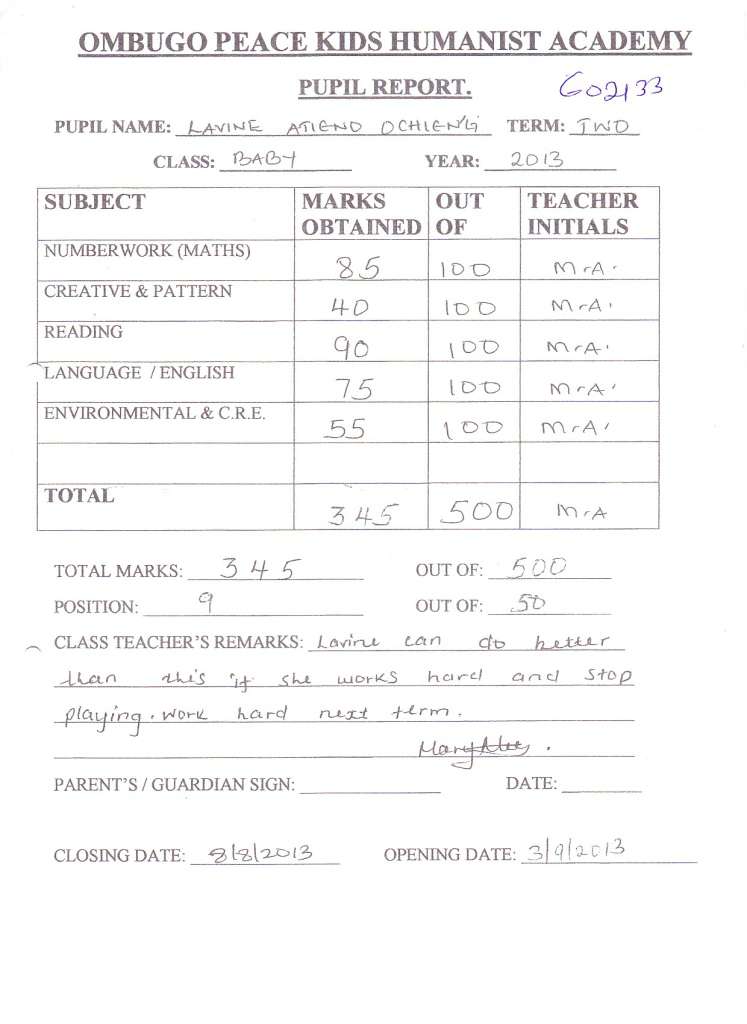 OMBUGO PEACE KIDS HUMANIST ACADEMY
PUPIL REPORT. G02133
PUPIL NAME: LAVINE ATIENO OCHIENG TERM: TWO
CLASS: BABY YEAR: 2013
SUBJECT MARKS OBTAINED OUT OF TEACHER INITIALS
NUMBERWORK (MATHS) 85 100 M.A.
CREATIVE & PATTERN 40 100 M.A.
READING 90 100 M.A.
LANGUAGE / ENGLISH 75 100 M.A.
ENVIRONMENTAL & C.R.E. 55 100 M.A.
TOTAL 345 500 M.A
TOTAL MARKS: 345 OUT OF: 500
POSITION: 9 OUT OF: 50
CLASS TEACHER'S REMARKS: Lavine can do better
than this if she works hard and stop
playing. work hard next term.
PARENT'S / GUARDIAN SIGN: DATE:
CLOSING DATE: 8/8/2013 OPENING DATE: 3/9/2013